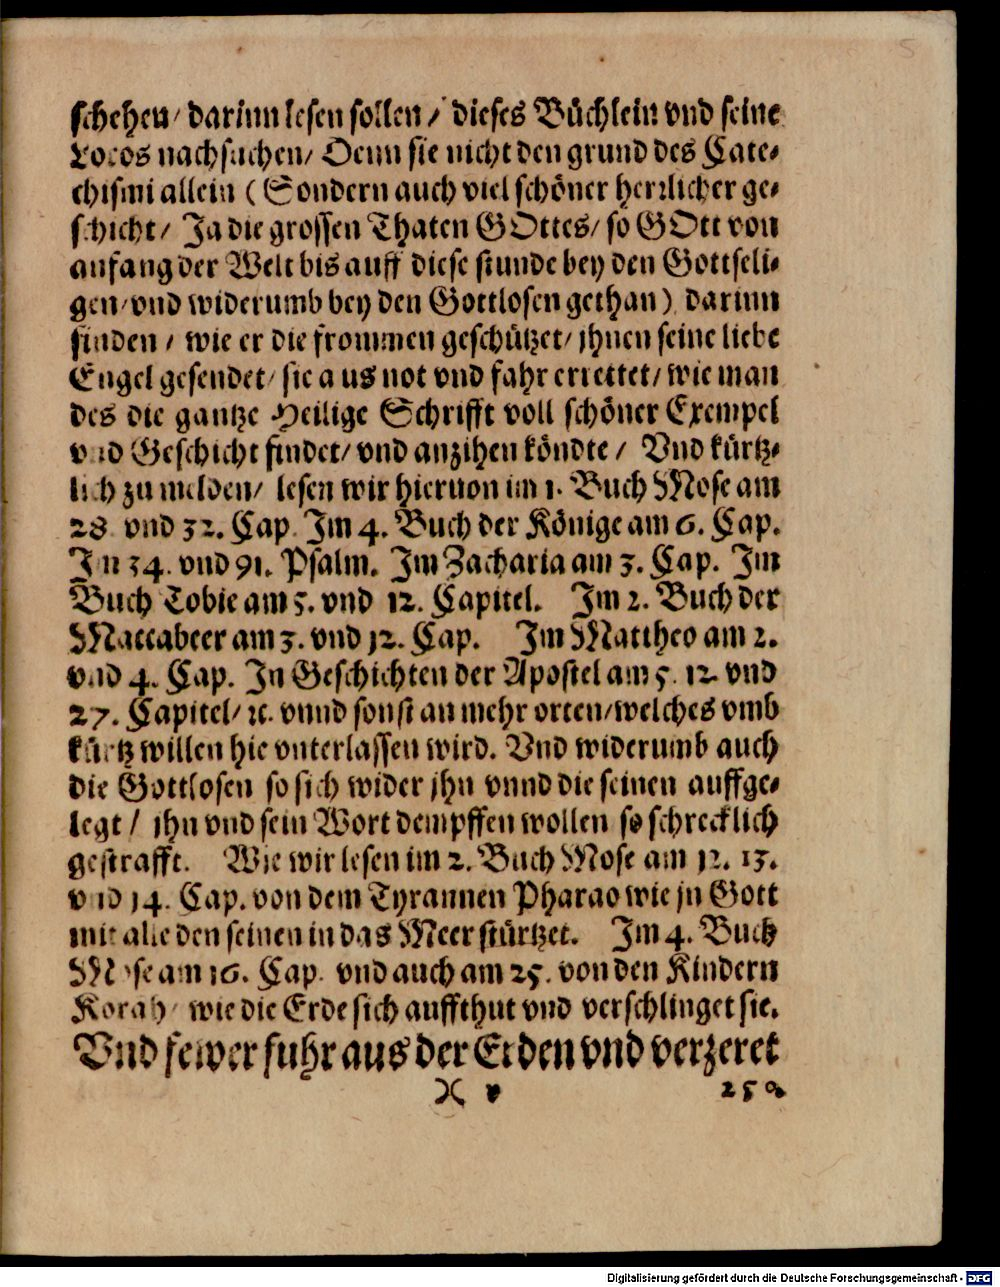 schehen/ darinn lesen sollen/ dieses Büchlein vnd seine
Locos nachsuchen/ Denn sie nicht den grund des Cate-
chismi allein (Sondern auch viel schöner herrlicher ge-
schicht/ Ja die grossen Thaten GOttes/ so GOtt von
anfang der Welt bis auff diese stunde bey den Gottseli-
gen/ vnd widerumb bey den Gottlosen gethan) darinn
finden/ wie er die frommen geschützet/ jhnen seine liebe
Engel gesendet/ sie aus not vnd fahr errettet/ wie man
des die gantze Heilige Schrifft voll schöner Exempel
vnd Geschicht findet/ vnd anzihen köndte/ Vnd kürtz-
lich zu melden/ lesen wir hieruon im 1. Buch Mose am
28. vnd 32. Cap. Im 4. Buch der Könige am 6. Cap.
In 34. vnd 91. Psalm. Im Zacharia am 3. Cap. Im
Buch Tobie am 5. vnd 12. Capitel. Im 2. Buch der
Maccabeer am 3. vnd 12. Cap. Im Mattheo am 2.
vnd 4. Cap. In Geschichten der Apostel am 5. 12. vnd
27. Capitel/ ꝛc. vnnd sonst an mehr orten/ welches vmb
kürtz willen hie vnterlassen wird. Vnd widerumb auch
die Gottlosen so sich wider jhn vnnd die seinen auffge-
legt/ jhn vnd sein Wort dempffen wollen so schrecklich
gestrafft. Wie wir lesen im 2. Buch Mose am 12. 13.
vnd 14. Cap. von dem Tyrannen Pharao wie jn Gott
mit alle den seinen in das Meer stürtzet. Im 4. Buch
Mose am 16. Cap. vnd auch am 25. von den Kindern
Korah/ wie die Erde sich auffthut vnd verschlinget sie.
Vnd fewer fuhr aus der Erden vnd verzeret
)( v 250.
Digitalisierung gefördert durch die Deutsche Forschungsgemeinschaft - DFG